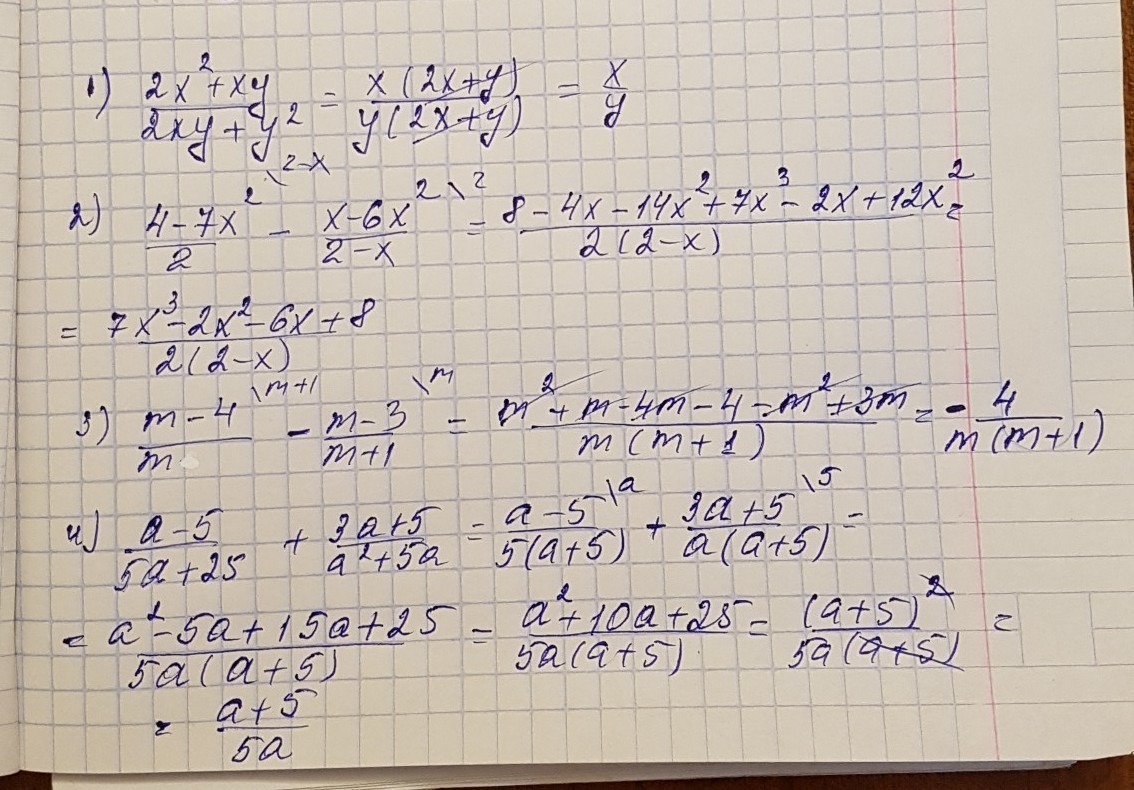 1) (2x² + xy)/(2xy + y²) = x(2x+y)/y(2x+y) = x/y
2) (4-7x²)/2 \2-x - (x-6x²)/(2-x) \2 = (8-4x-14x²+7x³-2x+12x²)/2(2-x) =
= (7x³-2x²-6x+8)/2(2-x)
3) (m-4)/m \m+1 - (m-3)/(m+1) \m = (m²+m-4m-4-m²+3m)/m(m+1) = - 4/m(m+1)
4) (a-5)/(5a+25) + (3a+5)/(a²+5a) = (a-5)/5(a+5) \a + (3a+5)/a(a+5) \5 =
= (a²-5a+15a+25)/5a(a+5) = (a²+10a+25)/5a(a+5) = (a+5)²/5a(a+5) =
= (a+5)/5a